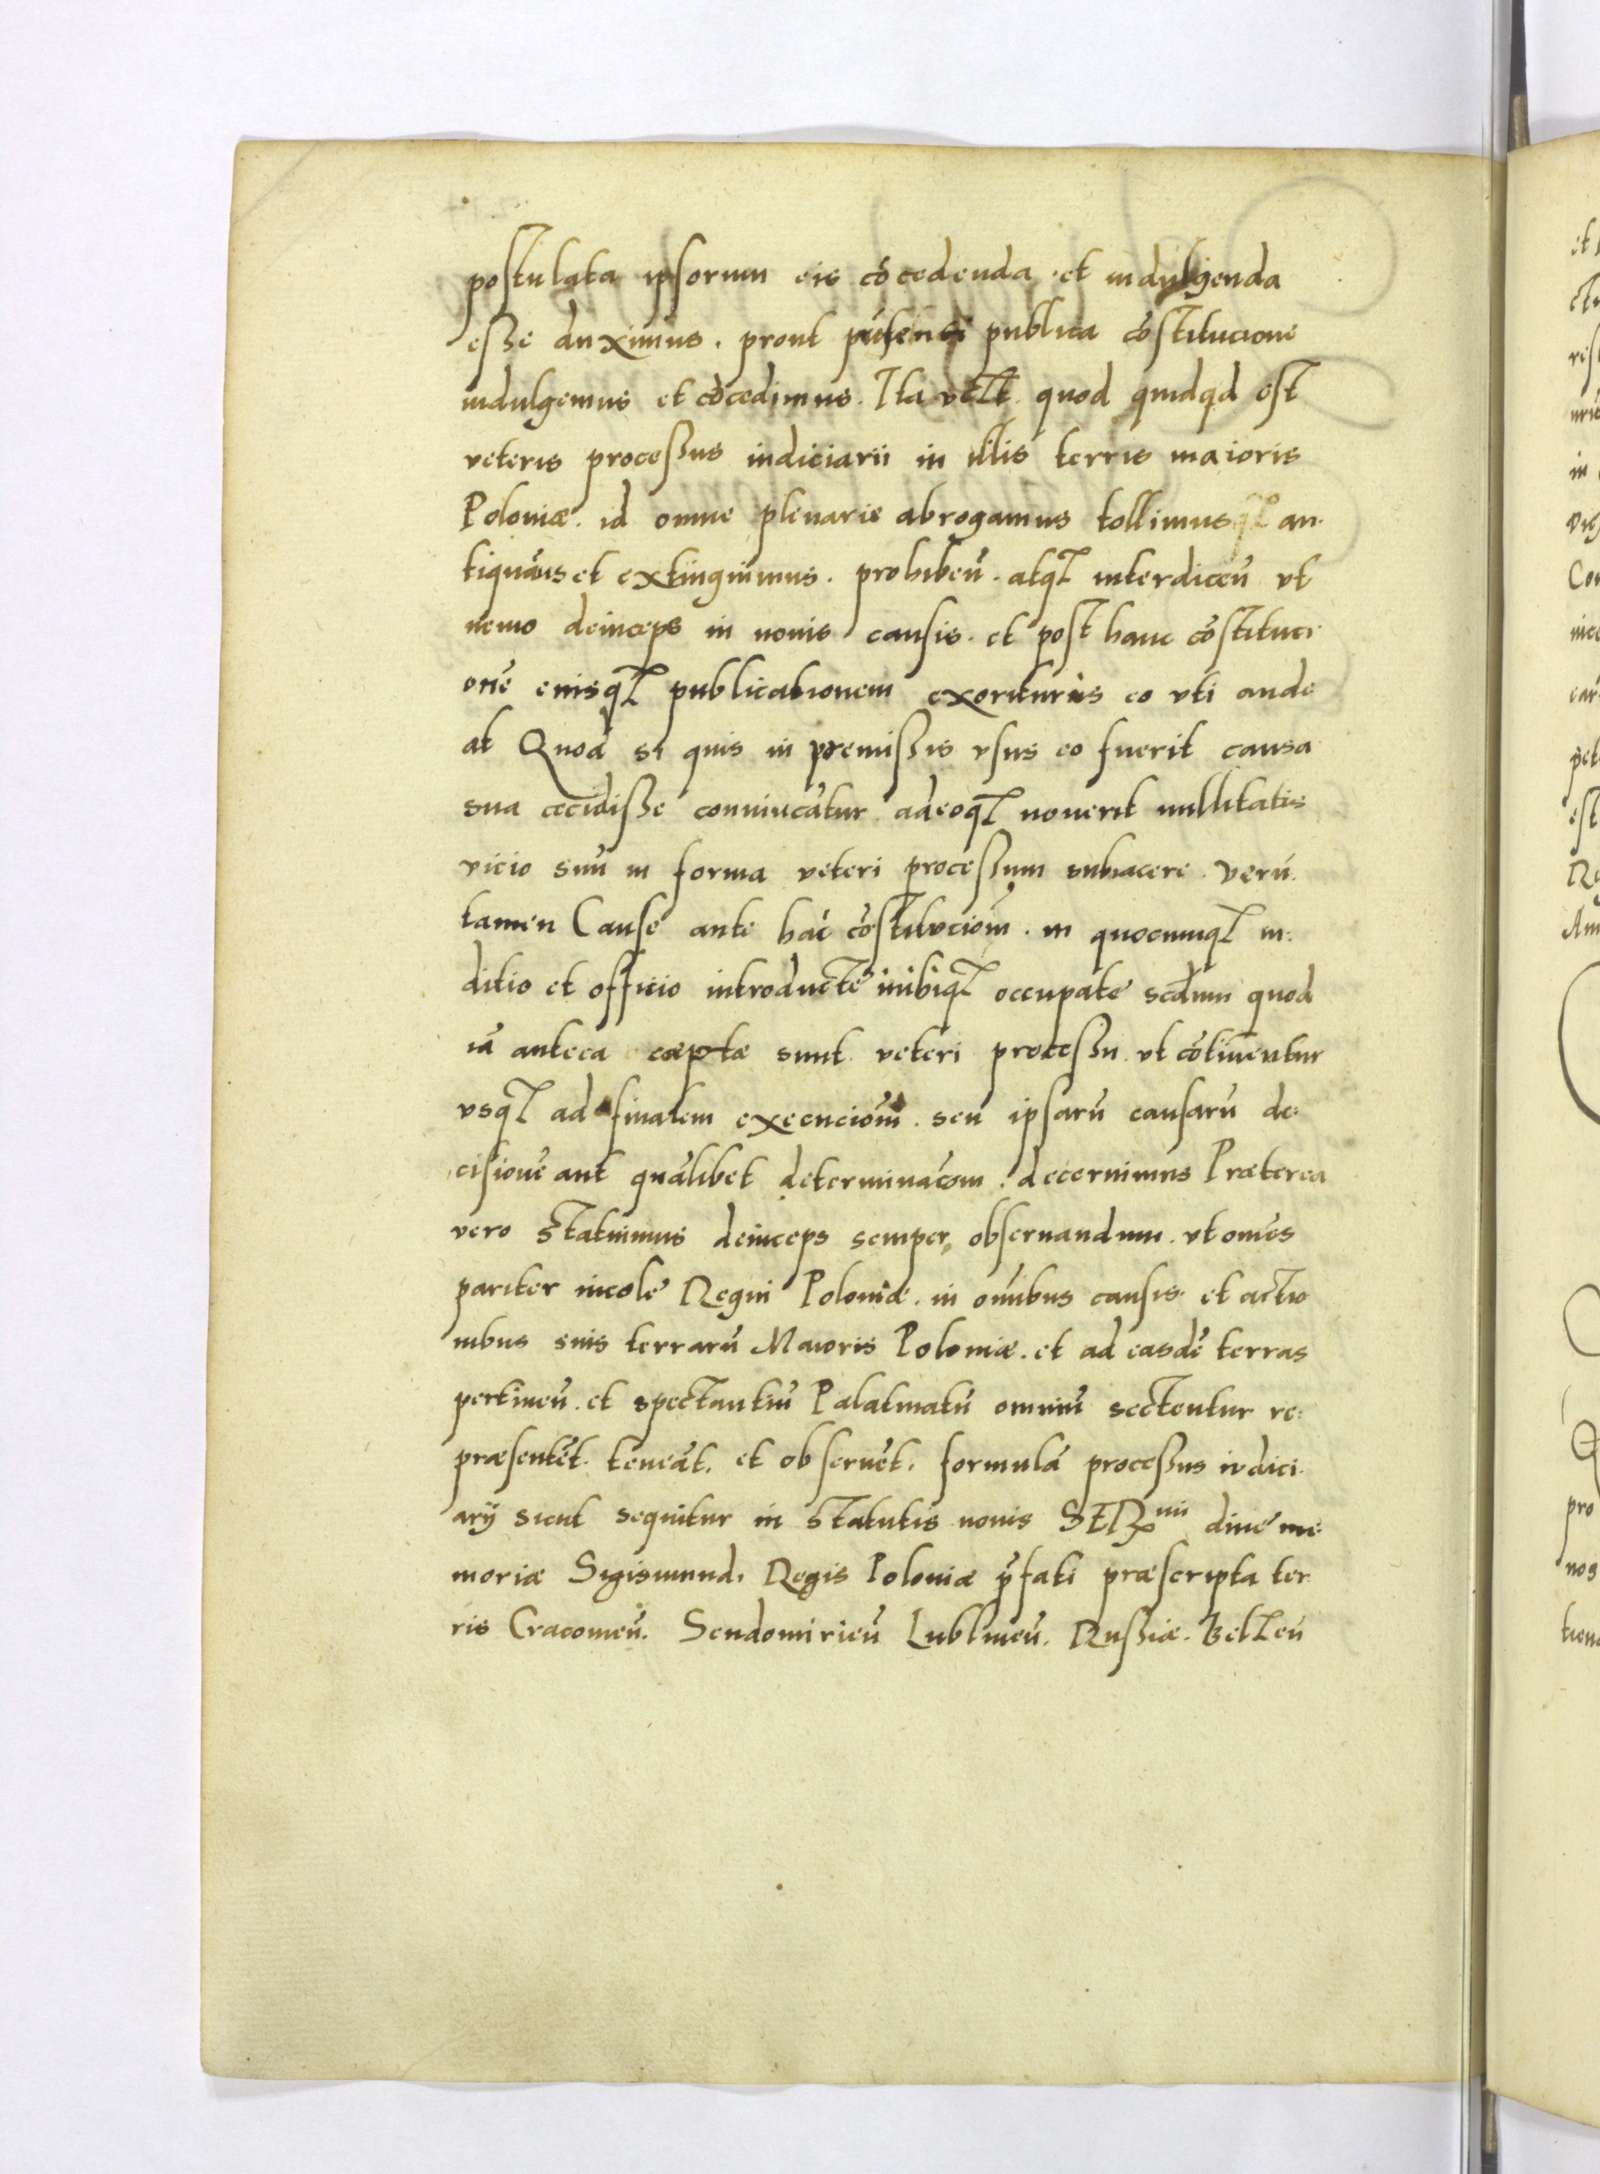 postulata ipsorum eis cōcedenda et indulgenda
esse duximus. prout pn̄tensi publica cōstitucione
indulgemus et cōcedimus. Ita vt quod quidq̨d est
veteris processus iudiciarii in illis terris maioris
Poloniæ. id omne plenarie abrogamus tollimusq3 an-
tiquām̄s et extinguimus. prohibeñ. atq3 interdiceñ vt
nemo deinceps in nouis causis. et post hanc cōstituci
onē eiusq3 publicationem exorituris eo vti aude
at Quod si quis in premissis vsus eo fuerit causa
sua cecidisse conuincātur adeoq3 nouerit nullitatis
vicio suū in forma veteri processum subiacere. Verū
tamen Cause ante hāc cōstitucionē. in quocunq3 iu-
ditio et officio introducte inibiq3 occupate secdum quod
iā antea cæptæ sunt veteri processu vt cōtinentur
vsq3 ad finalem execucionē. seu ipsarū causarū de-
cisionē aut quālibet determinacōm. decernimus Præterea
vero statuimus deinceps semper obseruandum. vt omēs
pariter incole Regni Poloniæ. in omībus causis et actio
nibus suis terrarū Maioris Poloniæ. et ad easdē terras
pertineñ. et spectantiū Palatinatū omniū sectentur re-
præsentēt. teneāt. et obseruēt. formulā processus iudici-
arÿ sicut sequitur in statutis nouis Ser mi diue me-
moriæ Sigismundi Regis Poloniæ p̄fati præscripta ter-
ris Cracouieñ. Sendomirieñ Lublineñ. Russiæ. Belzeñ